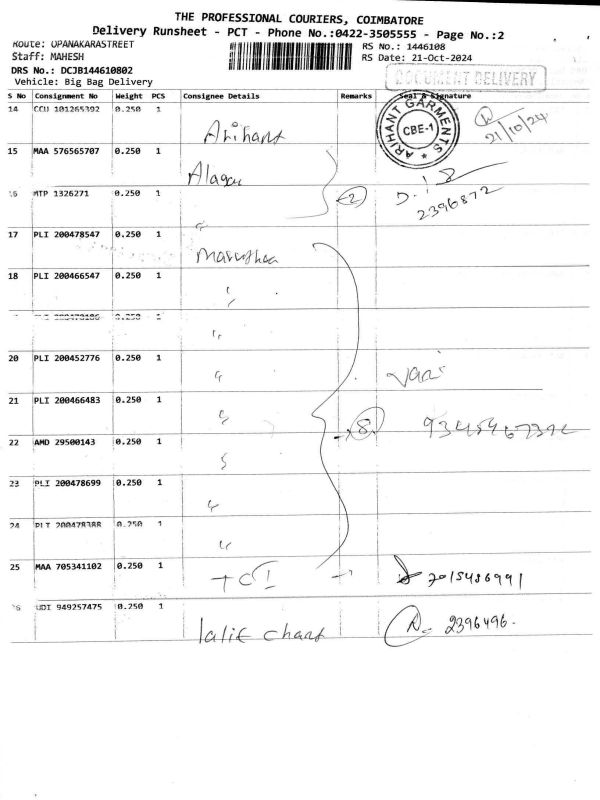 THE PROFESSIONAL COURIERS, COIMBATORE
Delivery Runsheet - PCT - Phone No.:0422-3505555 - Page No.:2
Route: OPANAKARASTREET RS No.: 1446108
Staff: MAHESH RS Date: 21-Oct-2024
DRS No.: DCJB144610802
Vehicle: Big Bag Delivery
DOCUMENT DELIVERY
S No Consignment No Weight PCS Consignee Details Remarks Seal & Signature
14 CCU 101265392 0.250 1 Arihant
ARIHANT GARMENTS CBE-1
21/10/24
15 MAA 576565707 0.250 1 Alagau
16 MTP 1326271 0.250 1 " 2
2396872
17 PLI 200478547 0.250 1 Maruthaa
18 PLI 200466547 0.250 1 "
0.250 1 "
20 PLI 200452776 0.250 1 " Vani
21 PLI 200466483 0.250 1 " 8
22 AMD 29500143 0.250 1 "
23 PLI 200478699 0.250 1 "
24 PLI 200478388 0.250 1 "
25 MAA 705341102 0.250 1 TCI 7015486991
26 UDI 949257475 0.250 1 lalit chant 2396496.